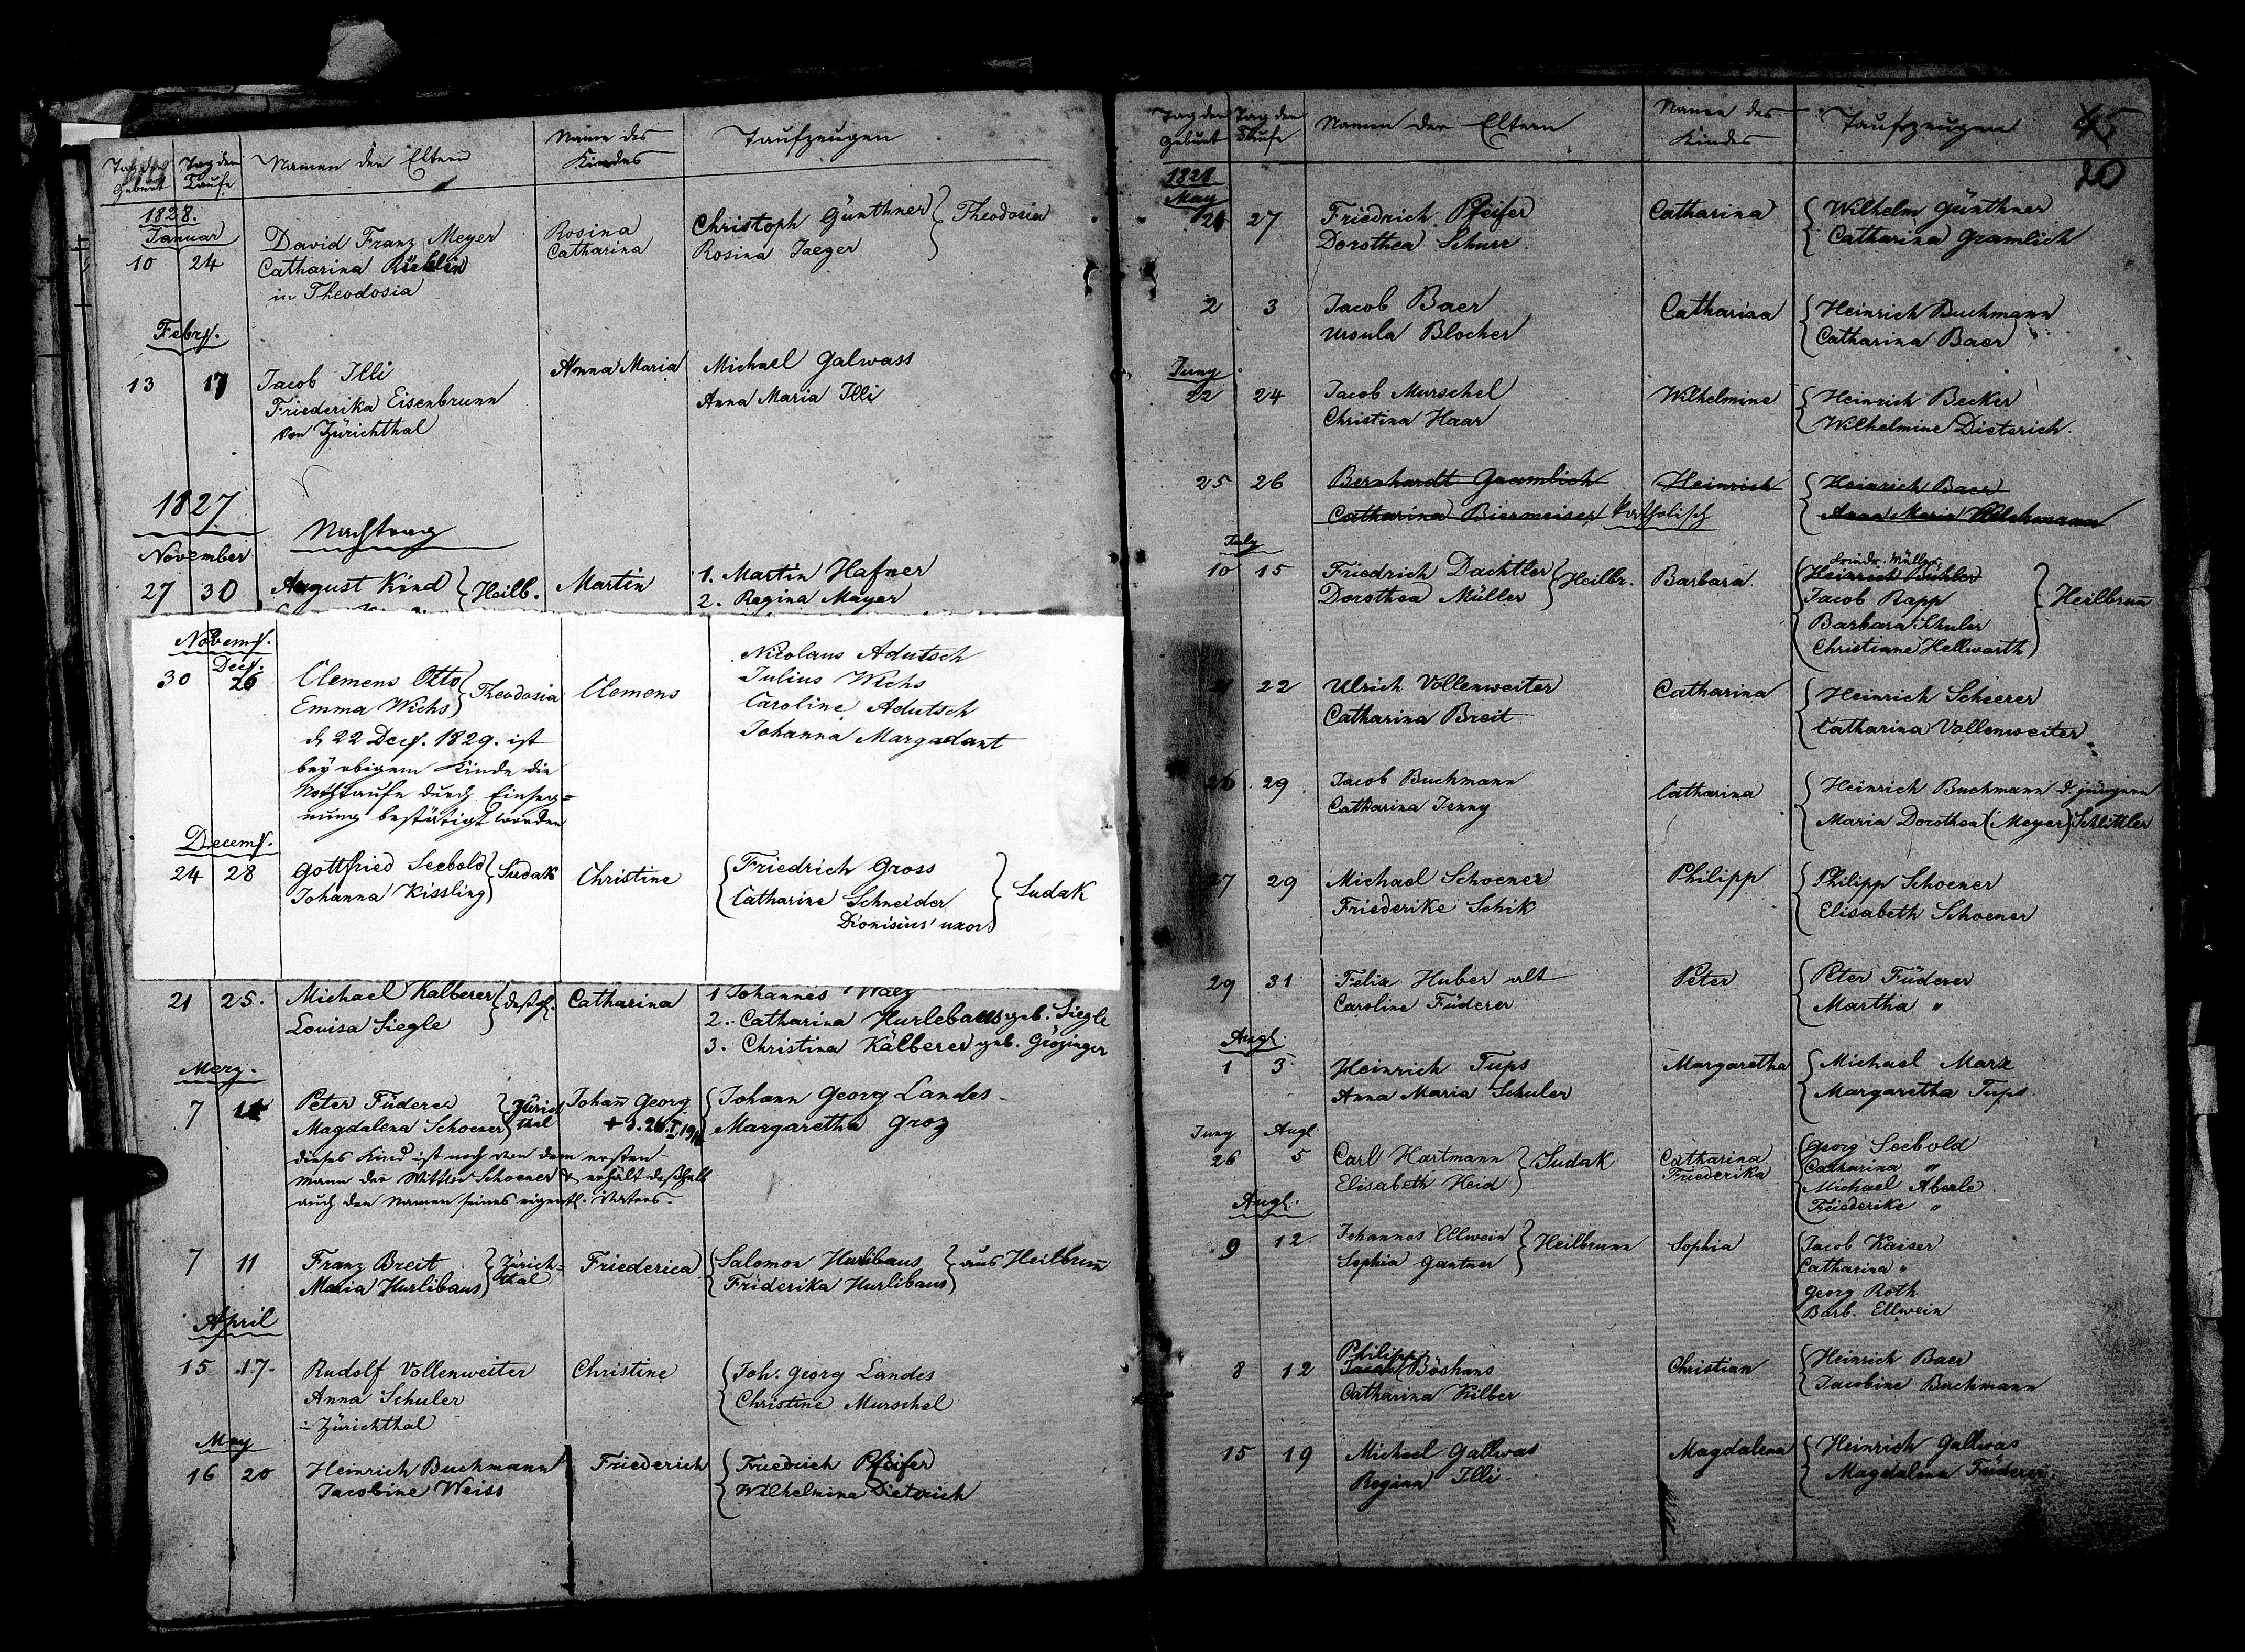 Tag der Geburt Tag der Taufe Namen der Eltern Name des Kindes Taufzeugen
1828.
Januar
10 24 David Franz Meyer Rosina Christoph Günthner } Theodosia
Catharina Catharina Rosina Jaeger
in Theodosia
Febry.
13 17 Jacob Illi Anna Maria Michael Galwass
Friederika Eisenbrunn Anna Maria Illi
von Zürichthal
1827
Nachtrag
November
27 30 August Kind } Heilb. Martin 1. Martin Hafner
2. Regina Mayer
Novembr.
Decbr.
30 26 Clemens Otto } Theodosia Clemens Nicolaus Adutsch
Emma Wichs Julius Wichs
Caroline Adutsch
Johanna Margadant
d. 22 Decbr. 1829. ist
bey obigem Kinde die
Nothtaufe durch Einseg=
nung bestätigt worden
Decembr.
24 28 Gottfried Seebold } Sudak Christine { Friedrich Gross } Sudak
Johanna Kissling Catharine Schneider
Dionisius' uxor.
21 25. Michael Kalberer } Catharina 1 Johannes Walz
Louisa Siegle 2. Catharina Hurlebaus geb. Siegle
3. Christina Kälberer geb. Grözinger
Merz.
7 Peter Füderer } Zürich Johann Georg { Johann Georg Landes
Magdalena Schoener thal Margaretha Groz
dieses Kind ist noch von dem ersten
Mann der Wittwe Schoener & erhält deßhalb
auch den Namen seines eigentl. Vaters.
7 11 Franz Breit } Zürich= Friederica { Salomon Hurlibaus } aus Heilbrunn
Maria Hurlibaus thal Friderika Hurlibaus
April
15 17. Rudolf Vollenweiter Christine { Joh. Georg Landes
Anna Schuler Christine Murschel
in Zürichthal
May
16 20 Heinrich Buchmann Friederich { Friedrich Pfeifer
Jacobine Weiss Wilhelmina Dieterich
Tag der Geburt Tag der Taufe Namen der Eltern Namen des Kindes Taufzeugen 45
20
1828
May
27 Friedrich Pfeifer Catharina { Wilhelm Günthner
Dorothea Schurr Catharina Gramlich
2 3 Jacob Baer Catharina { Heinrich Buchmann
Ursula Blocher Catharina Baer
Juny
22 24 Jacob Murschel Wilhelmine { Heinrich Becker
Christina Haar Wilhelmine Dieterich.
25 26 Bernhardt Gramlich Heinrich { Heinrich Baer
Catharina Biermeiser katholisch Anna Maria
July
10 15 Friedrich Dachtler } Heilbr. Barbara Friedr. Müller
Dorothea Müller Heinrich Schuler
Jacob Rapp } Heilbrunn
Barbara Schuler
Christiane Hellwarth
22 Ulrich Vollenweiter Catharina { Heinrich Scheerer
Catharina Breit Catharina Vollenweiter
26 29 Jacob Buchmann Catharina { Heinrich Buchmann d. jüngere
Catharina Jenny Maria Dorothea (Meyer) Schlittler
27 29 Michael Schoener Philipp { Philipp Schoener
Friederike Schik Elisabeth Schoener
29 31 Felix Huber alt Peter { Peter Füderer
Caroline Füderer Martha "
Augt.
1 3 Heinrich Tups Margaretha { Michael Marx
Anna Maria Schuler Margaretha Tups
Juny Augt.
26 5 Carl Hartmann } Sudak Catharina { Georg Seebold
Elisabeth Heid Friederika Catharina "
Michael Aberle
Friederike "
Augt.
9 12 Johannes Ellwein } Heilbrunn Sophia { Jacob Kaiser
Sophia Gantner Catharina "
Georg Roth
Barb. Ellwein
8 12 Philipp Jacob Böshans Christian { Heinrich Baer
Catharina Kilber Jacobine Buchmann
15 19 Michael Gallwas Magdalena { Heinrich Gallwas
Regina Illi Magdalena Füderer